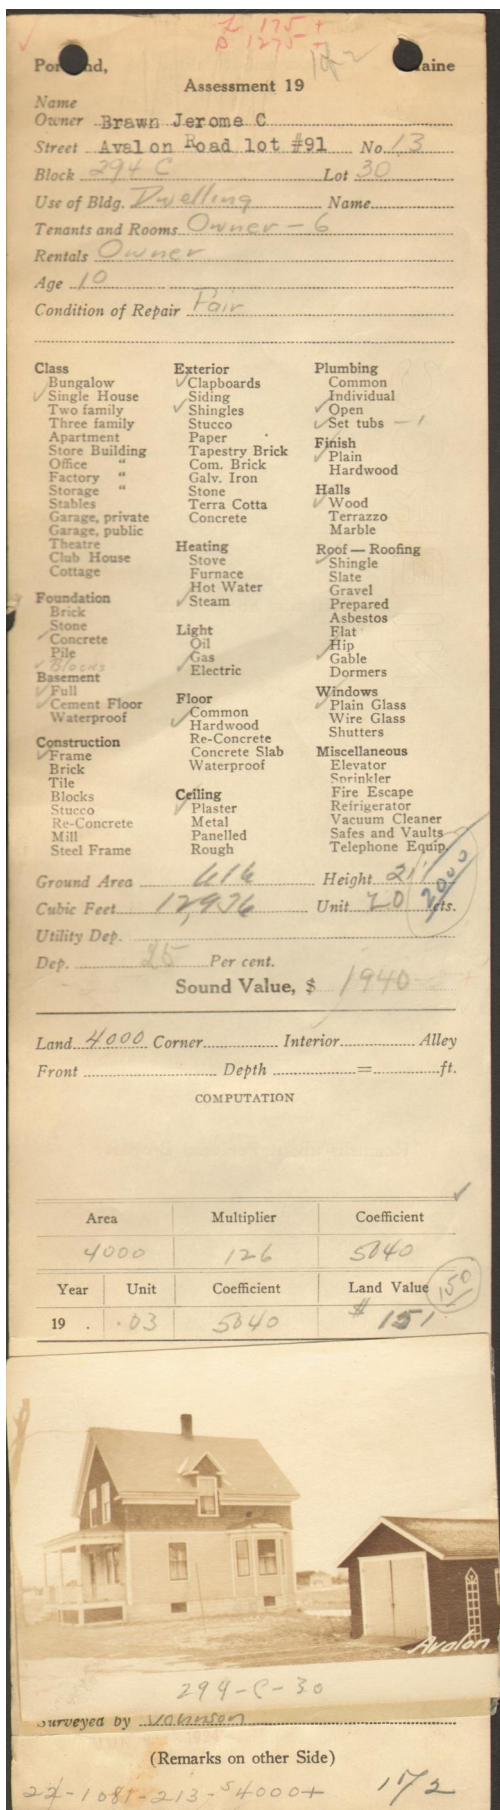 L 175 +
B 1275 +
Portland, Maine
Assessment 19
Name
Owner Brawn Jerome C
Street Avalon Road lot #91 No. 13
Block 294 C Lot 30
Use of Bldg. Dwelling Name
Tenants and Rooms Owner - 6
Rentals Owner
Age 10
Condition of Repair Fair
Class
Bungalow
✓ Single House
Two family
Three family
Apartment
Store Building
Office "
Factory "
Storage "
Stables
Garage, private
Garage, public
Theatre
Club House
Cottage
Foundation
Brick
Stone
✓ Concrete
Pile
✓ Blocks
Basement
✓ Full
✓ Cement Floor
Waterproof
Construction
✓ Frame
Brick
Tile
Blocks
Stucco
Re-Concrete
Mill
Steel Frame
Exterior
✓ Clapboards
Siding
✓ Shingles
Stucco
Paper
Tapestry Brick
Com. Brick
Galv. Iron
Stone
Terra Cotta
Concrete
Heating
Stove
Furnace
Hot Water
✓ Steam
Light
Oil
Gas
✓ Electric
Floor
Common
✓ Hardwood
Re-Concrete
Concrete Slab
Waterproof
Ceiling
✓ Plaster
Metal
Panelled
Rough
Plumbing
Common
Individual
✓ Open
✓ Set tubs - 1
Finish
✓ Plain
Hardwood
Halls
✓ Wood
Terrazzo
Marble
Roof — Roofing
✓ Shingle
Slate
Gravel
Prepared
Asbestos
Flat
Hip
✓ Gable
Dormers
Windows
✓ Plain Glass
Wire Glass
Shutters
Miscellaneous
Elevator
Sprinkler
Fire Escape
Refrigerator
Vacuum Cleaner
Safes and Vaults
Telephone Equip.
Ground Area 616 Height 21'
Cubic Feet 12,936 Unit 20 cts.
2000
Utility Dep.
Dep. 25 Per cent.
Sound Value, $ 1940
Land 4000 Corner Interior Alley
Front Depth = ft.
COMPUTATION
Area Multiplier Coefficient
4000 126 5040
Year Unit Coefficient Land Value
150
19 . .03 5040 $ 151
Avalon
294-C-30
Surveyed by Johnson
(Remarks on other Side)